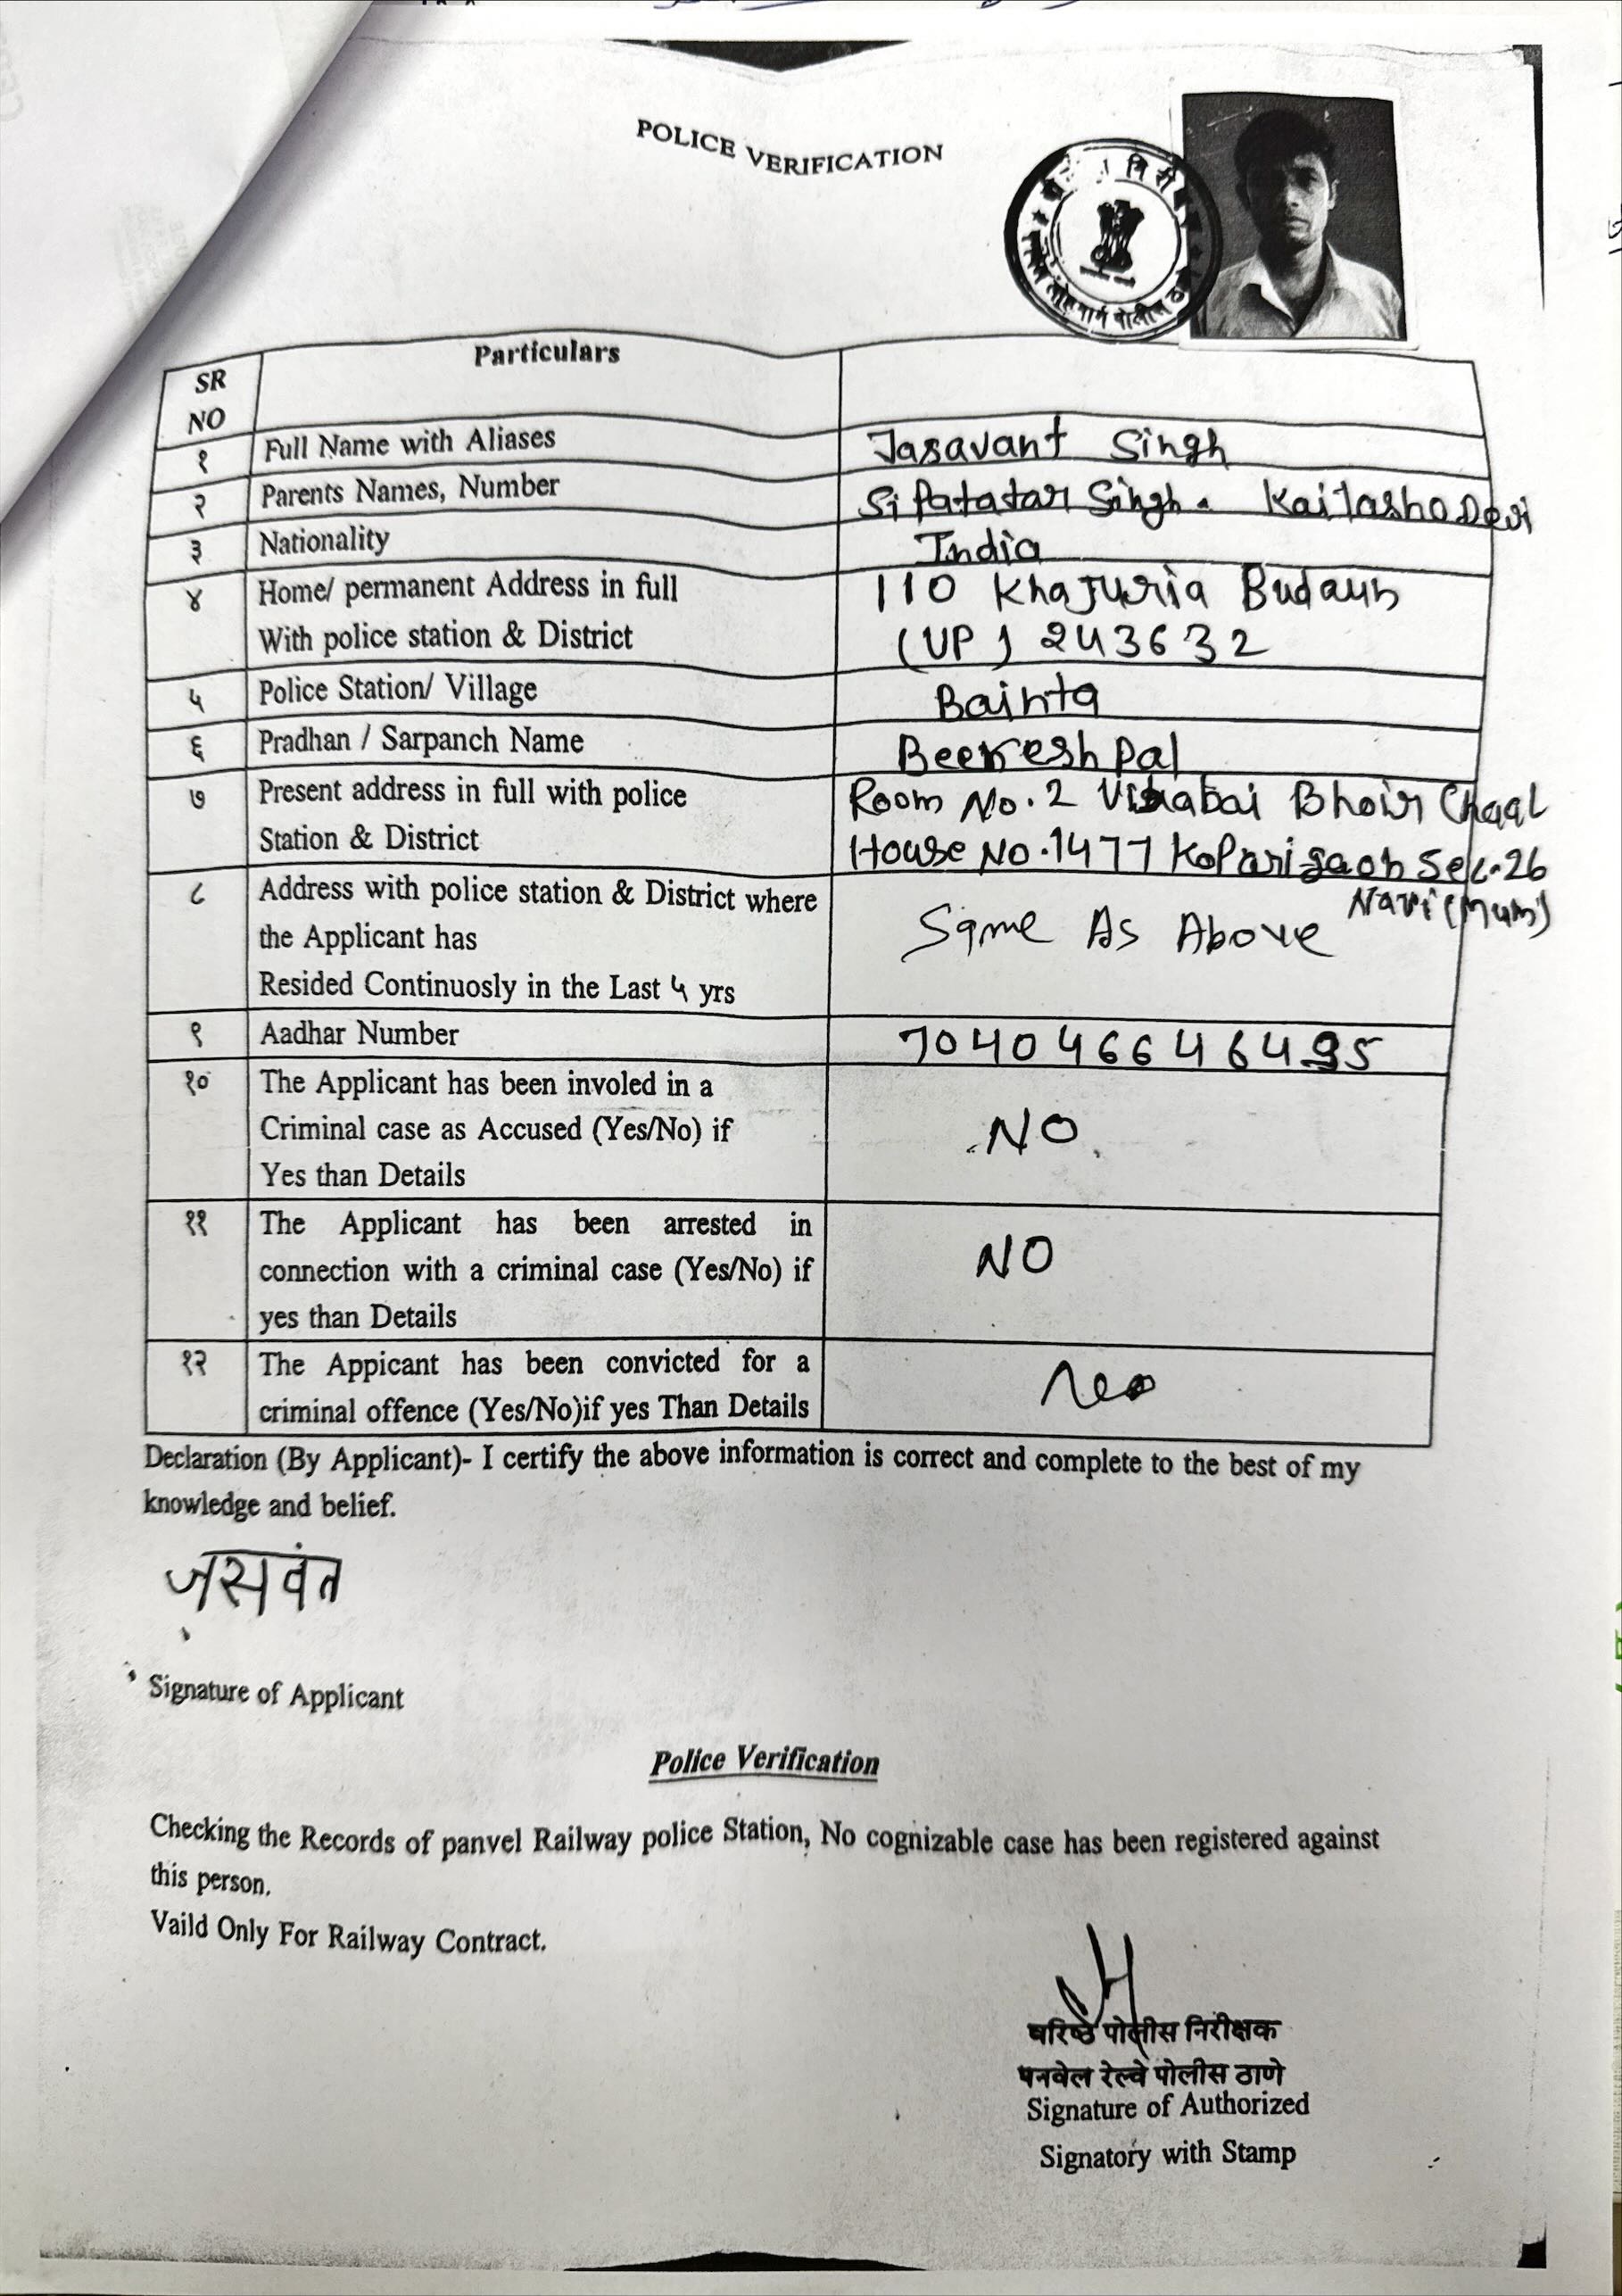 POLICE VERIFICATION
SR NO
Particulars
१ Full Name with Aliases Jasavant Singh
२ Parents Names, Number Si Patatar Singh. Kailasho Devi
३ Nationality India
४ Home/ permanent Address in full 110 Khajuria Budaun
With police station & District (UP) 243632
५ Police Station/ Village Bainta
६ Pradhan / Sarpanch Name Beekesh Pal
७ Present address in full with police Room No.2 Bhoir Chaal
Station & District House No.1477 Koparigaon Sec.26
Navi (Mum)
८ Address with police station & District where
the Applicant has Same As Above
Resided Continuosly in the Last ५ yrs
९ Aadhar Number 704046646495
१० The Applicant has been involed in a
Criminal case as Accused (Yes/No) if NO
Yes than Details
११ The Applicant has been arrested in
connection with a criminal case (Yes/No) if NO
yes than Details
१२ The Appicant has been convicted for a
criminal offence (Yes/No)if yes Than Details
Declaration (By Applicant)- I certify the above information is correct and complete to the best of my
knowledge and belief.
जसवंत
Signature of Applicant
Police Verification
Checking the Records of panvel Railway police Station, No cognizable case has been registered against
this person.
Vaild Only For Railway Contract.
वरिष्ठ पोलीस निरीक्षक
पनवेल रेल्वे पोलीस ठाणे
Signature of Authorized
Signatory with Stamp